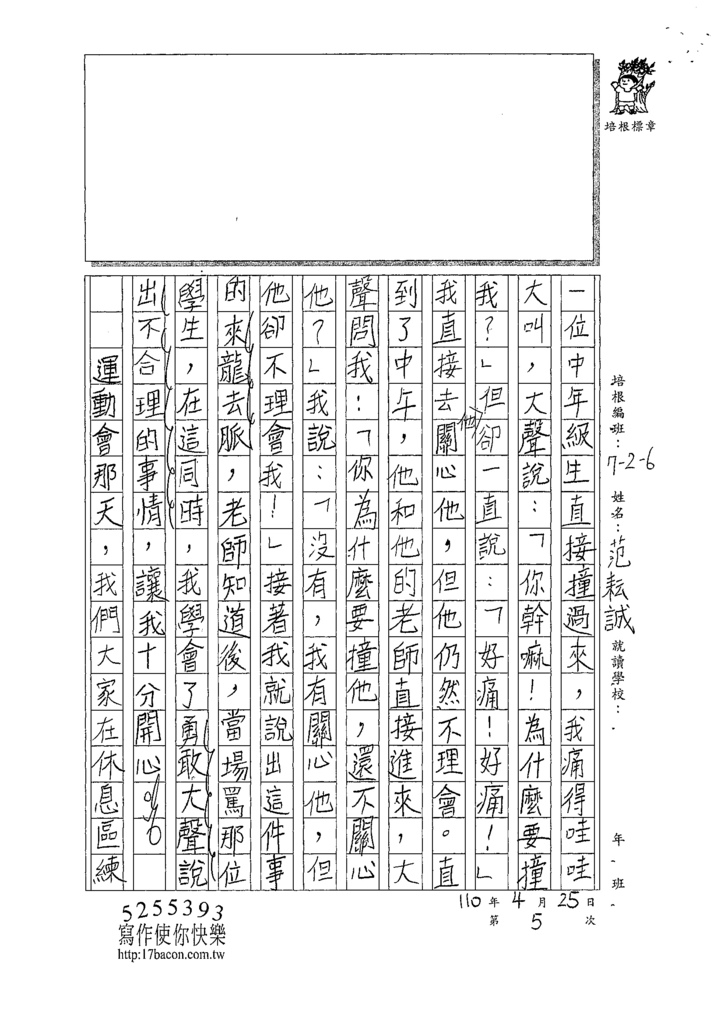 培根標章
培根編班：7-2-6 姓名：范耘誠 就讀學校： 年 班
110年4月25日
第5次
一位中年級生直接撞過來，我痛得哇哇
大叫，大聲說：「你幹嘛！為什麼要撞
我？」但他卻一直說：「好痛！好痛！」
我直接去關心他，但他仍然不理會。直
到了中午，他和他的老師直接進來，大
聲問我：「你為什麼要撞他，還不關心
他？」我說：「沒有，我有關心他，但
他卻不理會我！」接著我就說出這件事
的來龍去脈，老師知道後，當場罵那位
學生，在這同時，我學會了勇敢大聲說
出不合理的事情，讓我十分開心。
運動會那天，我們大家在休息區練
5255393
寫作使你快樂
http:17bacon.com.tw